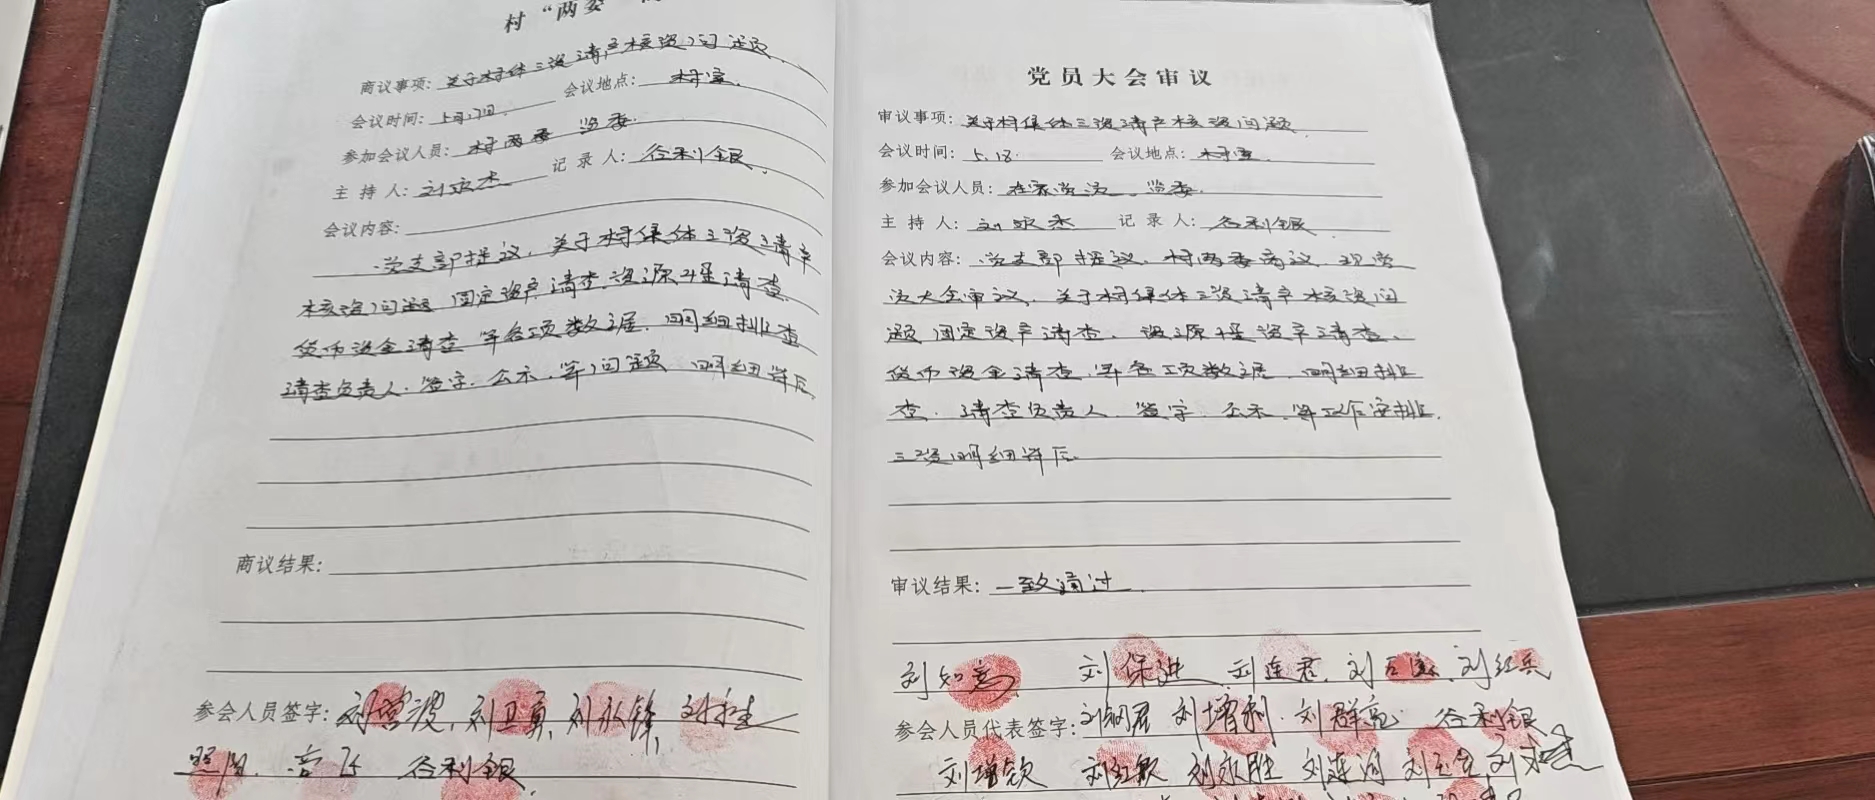 村“两委”
商议事项：关于村集体三资清产核资问题
会议时间：5月17日 会议地点：村室
参加会议人员：村两委 监委
主持人：刘永杰 记录人：谷利银
会议内容：
党支部提议，关于村集体三资清产
核资问题 固定资产清查，资源性清查
货币资金清查 等各项数据，明细排查
清查负责人、签字、公示、等问题 明细详后
商议结果：
参会人员签字：刘营波，刘卫真，刘永锋，
谷利银
党员大会审议
审议事项：关于村集体三资清产核资问题
会议时间：5.18. 会议地点：村室
参加会议人员：在家党员、监委
主持人：刘永杰 记录人：谷利银
会议内容：党支部提议，村两委商议，现党
员大会审议，关于村集体三资清产核资问
题 固定资产清查，资源性资产清查，
货币资金清查，等各项数据，明细排
查，清查负责人 签字，公示，等工作安排，
三资明细详后
审议结果：一致通过
刘知高 刘保进 刘连君，刘红兵
参会人员代表签字：刘钢君 刘增利 刘群亮 谷利银
刘增钦 刘红敏 刘永胜